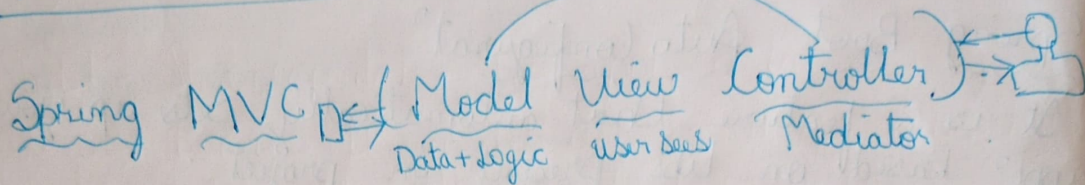 Spring MVC (Model View Controller)
Data+Logic user sees Mediator